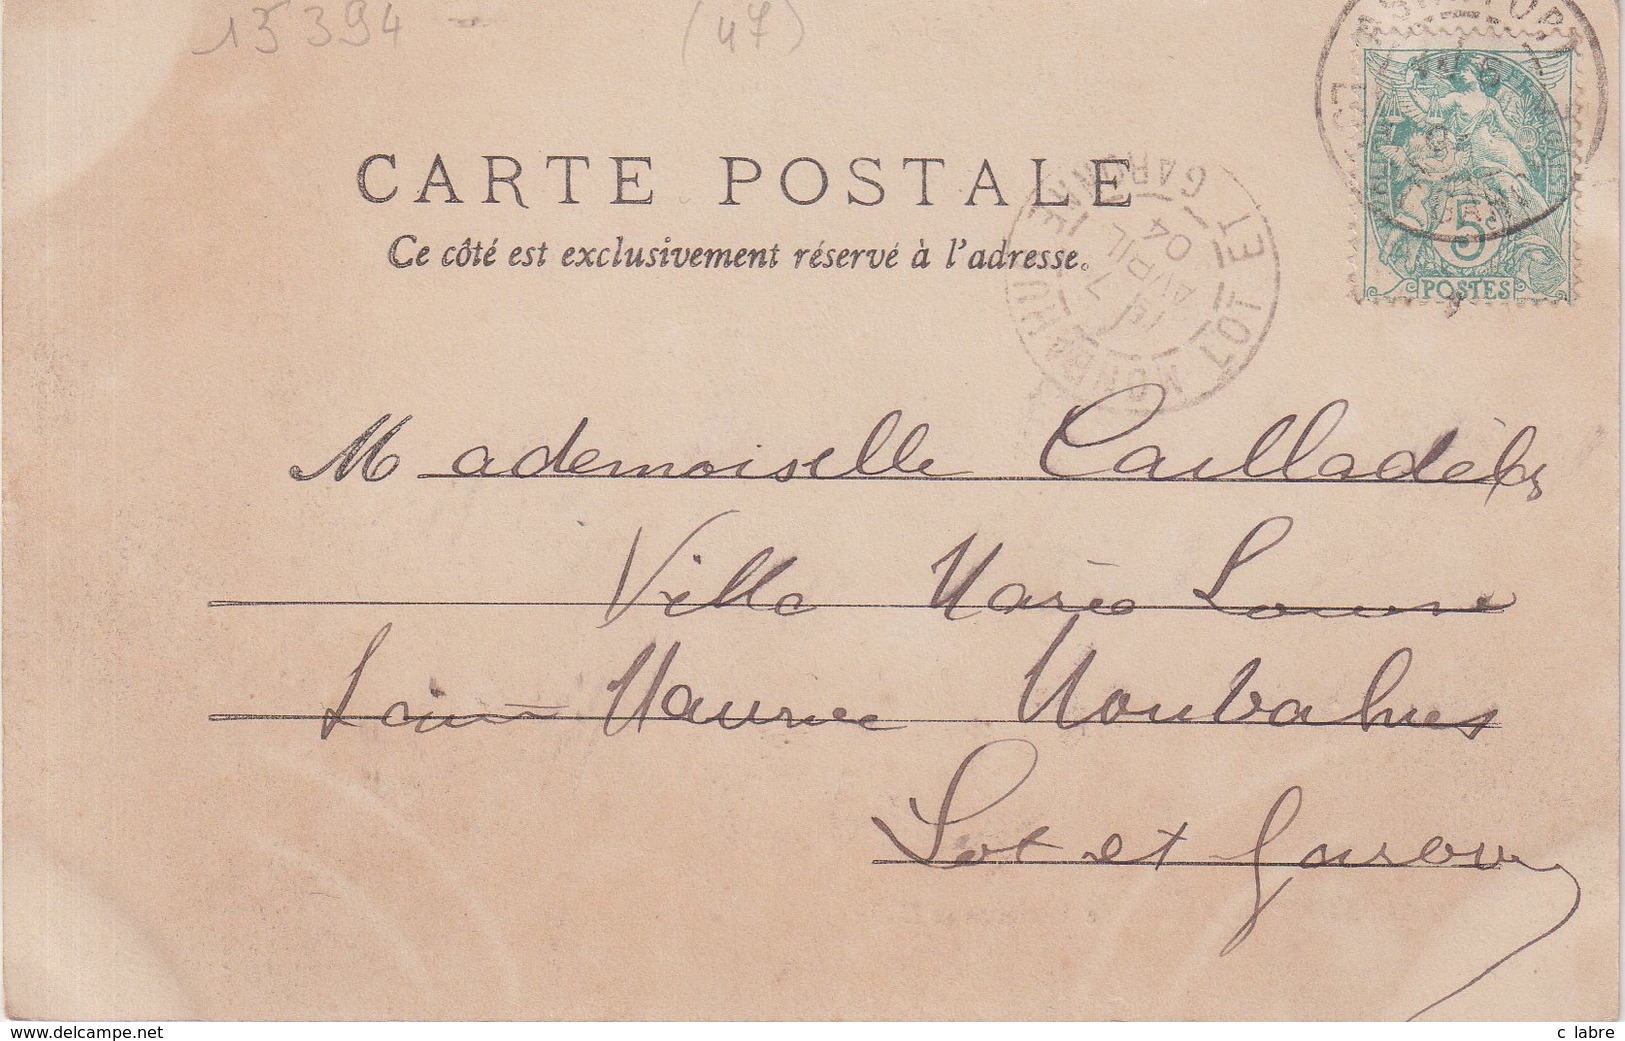 15394 (47)
CARTE POSTALE
Ce côté est exclusivement réservé à l'adresse.
LOT ET GARONNE
15 7 AVRIL 04
5
POSTES
Mademoiselle Cailladèles
Villa Marie Louise
Saint Maurice Monbahus
Lot et Garonne
www.delcampe.net
c labre